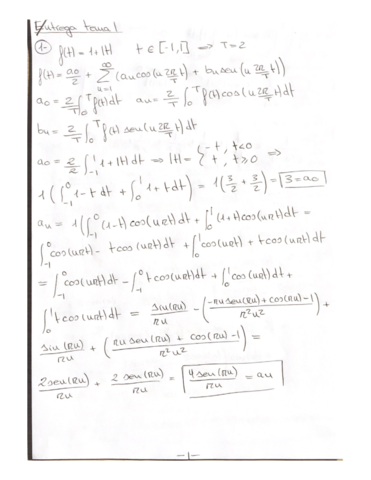 Entrega tema 1
1- f(t) = 1 + |t|   t ∈ [-1,1] ⟹ T = 2
f(t) = a₀/2 + Σ_{n=1}^{∞} (aₙ cos(n 2π/T t) + bₙ sen(n 2π/T t))
a₀ = 2/T ∫₀^T f(t) dt   aₙ = 2/T ∫₀^T f(t) cos(n 2π/T t) dt
bₙ = 2/T ∫₀^T f(t) sen(n 2π/T t) dt
a₀ = 2/2 ∫₋₁^1 1 + |t| dt ⟹ |t| = { -t, t<0 ; t, t≥0 ⟹
1 (∫₋₁^0 1 - t dt + ∫₀^1 1 + t dt) = 1 (3/2 + 3/2) = 3 = a₀
aₙ = 1 (∫₋₁^0 (1-t) cos(nπt) dt + ∫₀^1 (1+t) cos(nπt) dt =
∫₋₁^0 cos(nπt) - t cos(nπt) dt + ∫₀^1 cos(nπt) + t cos(nπt) dt
= ∫₋₁^0 cos(nπt) dt - ∫₋₁^0 t cos(nπt) dt + ∫₀^1 cos(nπt) dt +
∫₀^1 t cos(nπt) dt = sin(πn)/πn - (-πn sen(πn) + cos(πn) - 1)/π²n² +
sin(πn)/πn + (πn sen(πn) + cos(πn) - 1)/π²n² =
2 sen(πn)/πn + 2 sen(πn)/πn = 4 sen(πn)/πn = aₙ
-1-